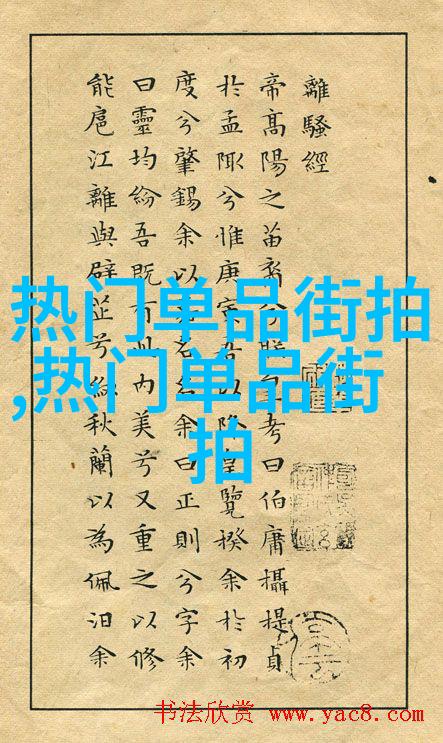 離騷經
帝高陽之苗裔兮朕皇考曰伯庸攝提貞
於孟陬兮惟庚寅吾以降皇覽揆余於初
度兮肇錫余以名余曰正則兮字余
曰靈均紛吾既有此内美兮又重之以修
能扈江離與辟芷兮紉秋蘭以為佩汨余
热门单品街拍
,热门单品街
拍
书法欣赏 www.yac8.com